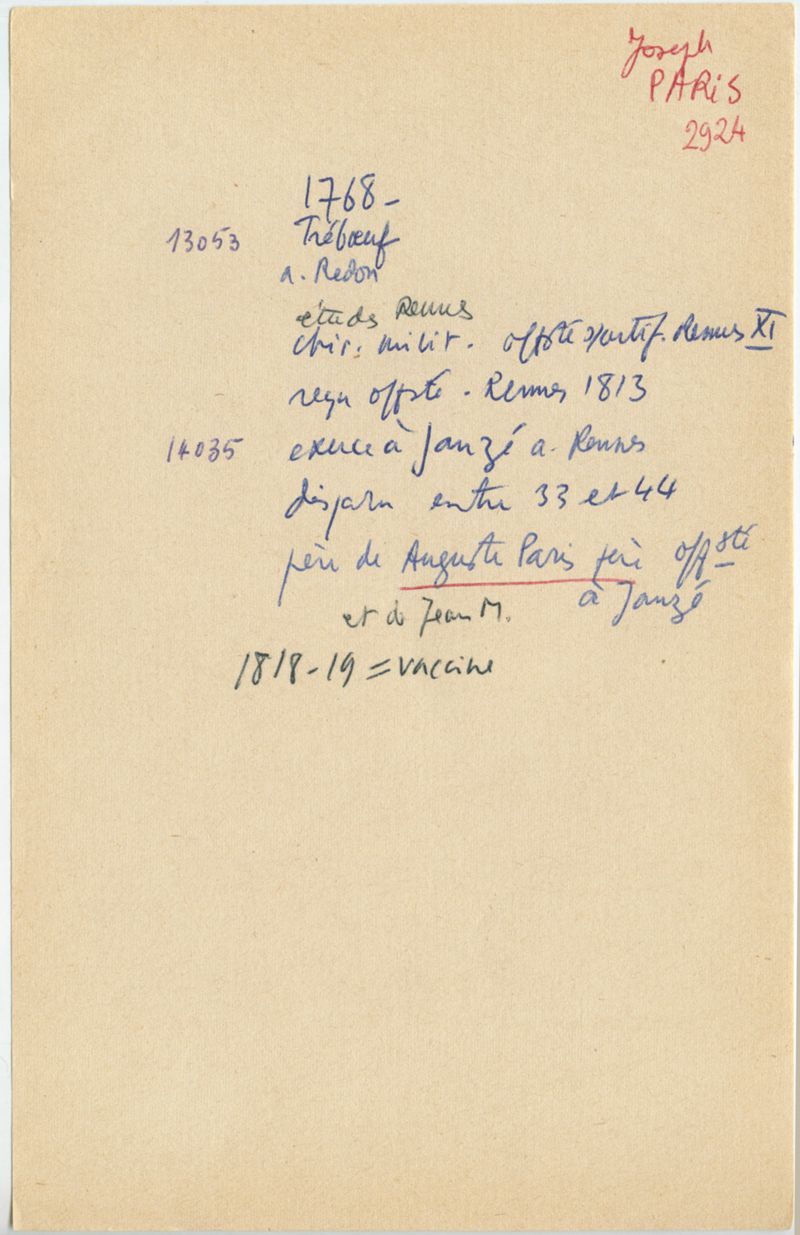 Joseph
PARIS
2924
1768-
13053 Trébœuf
a. Redon
études Rennes
chir. milit. offsté Rennes XI
reçu offsté - Rennes 1813
14035 exerce à Janzé a. Rennes
disparu entre 33 et 44
père de Auguste Paris père offsté
à Janzé
et de Jean M.
1818-19 = vaccine